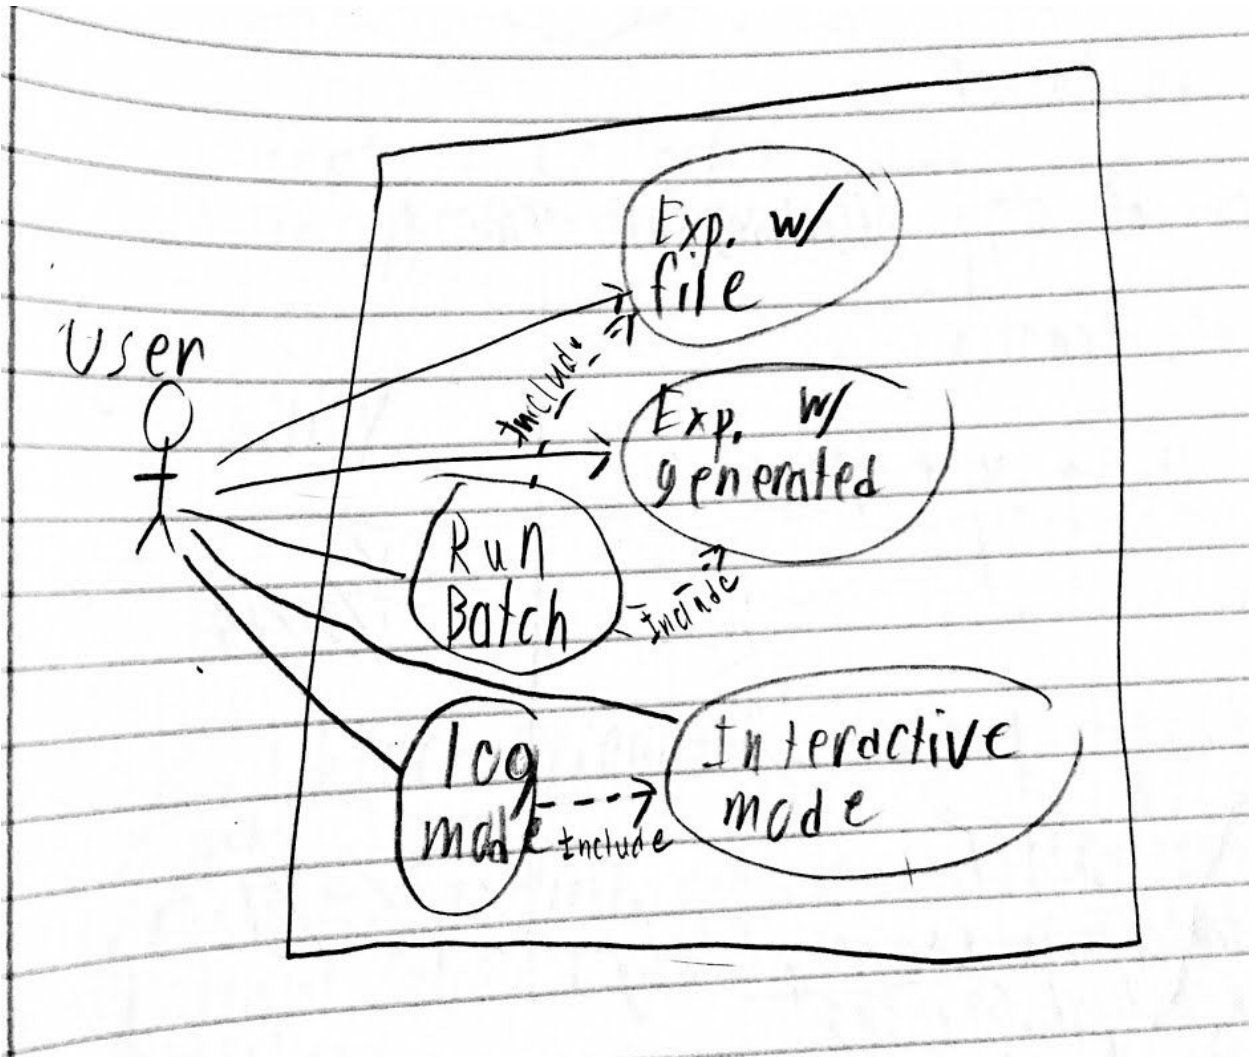 User
Exp. w/
file
Include
Exp. w/
generated
Run
Batch
Include
log
mode
Include
Interactive
mode